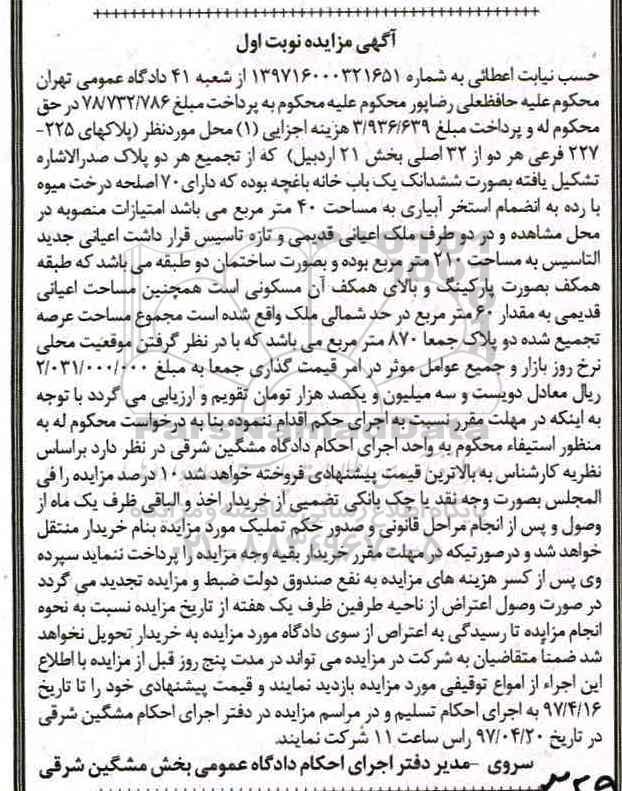 آگهی مزایده نوبت اول
حسب نیابت اعطائی به شماره ۱۳۹۷۱۶۰۰۰۳۲۱۶۵۱ از شعبه ۴۱ دادگاه عمومی تهران
محکوم علیه حافظعلی رضاپور محکوم علیه محکوم به پرداخت مبلغ ۷۸/۷۳۲/۷۸۶ در حق
محکوم له و پرداخت مبلغ ۳/۹۳۶/۶۳۹ هزینه اجزایی (۱) محل موردنظر (پلاکهای ۲۲۵-
۲۲۷ فرعی هر دو از ۳۲ اصلی بخش ۲۱ اردبیل) که از تجمیع هر دو پلاک صدرالاشاره
تشکیل یافته بصورت ششدانک یک باب خانه باغچه بوده که دارای ۷۰ اصلحه درخت میوه
با رده به انضمام استخر آبیاری به مساحت ۴۰ متر مربع می باشد امتیازات منصوبه در
محل مشاهده و در دو طرف ملک اعیانی قدیمی و تازه تاسیس قرار داشت اعیانی جدید
التاسیس به مساحت ۲۱۰ متر مربع بوده و بصورت ساختمان دو طبقه می باشد که طبقه
همکف بصورت پارکینگ و بالای همکف آن مسکونی است همچنین مساحت اعیانی
قدیمی به مقدار ۶۰ متر مربع در حد شمالی ملک واقع شده است مجموع مساحت عرصه
تجمیع شده دو پلاک جمعا ۸۷۰ متر مربع می باشد که با در نظر گرفتن موقعیت محلی
نرخ روز بازار و جمیع عوامل موثر در امر قیمت گذاری جمعا به مبلغ ۲/۰۳۱/۰۰۰/۰۰۰
ریال معادل دویست و سه میلیون و یکصد هزار تومان تقویم و ارزیابی می گردد با توجه
به اینکه در مهلت مقرر نسبت به اجرای حکم اقدام ننموده بنا به درخواست محکوم له به
منظور استیفاء محکوم به واحد اجرای احکام دادگاه مشگین شرقی در نظر دارد براساس
نظریه کارشناس به بالاترین قیمت پیشنهادی فروخته خواهد شد ۱۰ درصد مزایده را فی
المجلس بصورت وجه نقد یا چک بانکی تضمینی از خریدار اخذ و الباقی ظرف یک ماه از
وصول و پس از انجام مراحل قانونی و صدور حکم تملیک مورد مزایده بنام خریدار منتقل
خواهد شد و درصورتیکه در مهلت مقرر خریدار بقیه وجه مزایده را پرداخت ننماید سپرده
وی پس از کسر هزینه های مزایده به نفع صندوق دولت ضبط و مزایده تجدید می گردد
در صورت وصول اعتراض از ناحیه طرفین ظرف یک هفته از تاریخ مزایده نسبت به نحوه
انجام مزایده تا رسیدگی به اعتراض از سوی دادگاه مورد مزایده به خریدار تحویل نخواهد
شد ضمناً متقاضیان به شرکت در مزایده می تواند در مدت پنج روز قبل از مزایده با اطلاع
این اجراء از امواع توقیفی مورد مزایده بازدید نمایند و قیمت پیشنهادی خود را تا تاریخ
۹۷/۴/۱۶ به اجرای احکام تسلیم و در مراسم مزایده در دفتر اجرای احکام مشگین شرقی
در تاریخ ۹۷/۰۴/۲۰ راس ساعت ۱۱ شرکت نمایند.
سروی -مدیر دفتر اجرای احکام دادگاه عمومی بخش مشگین شرقی